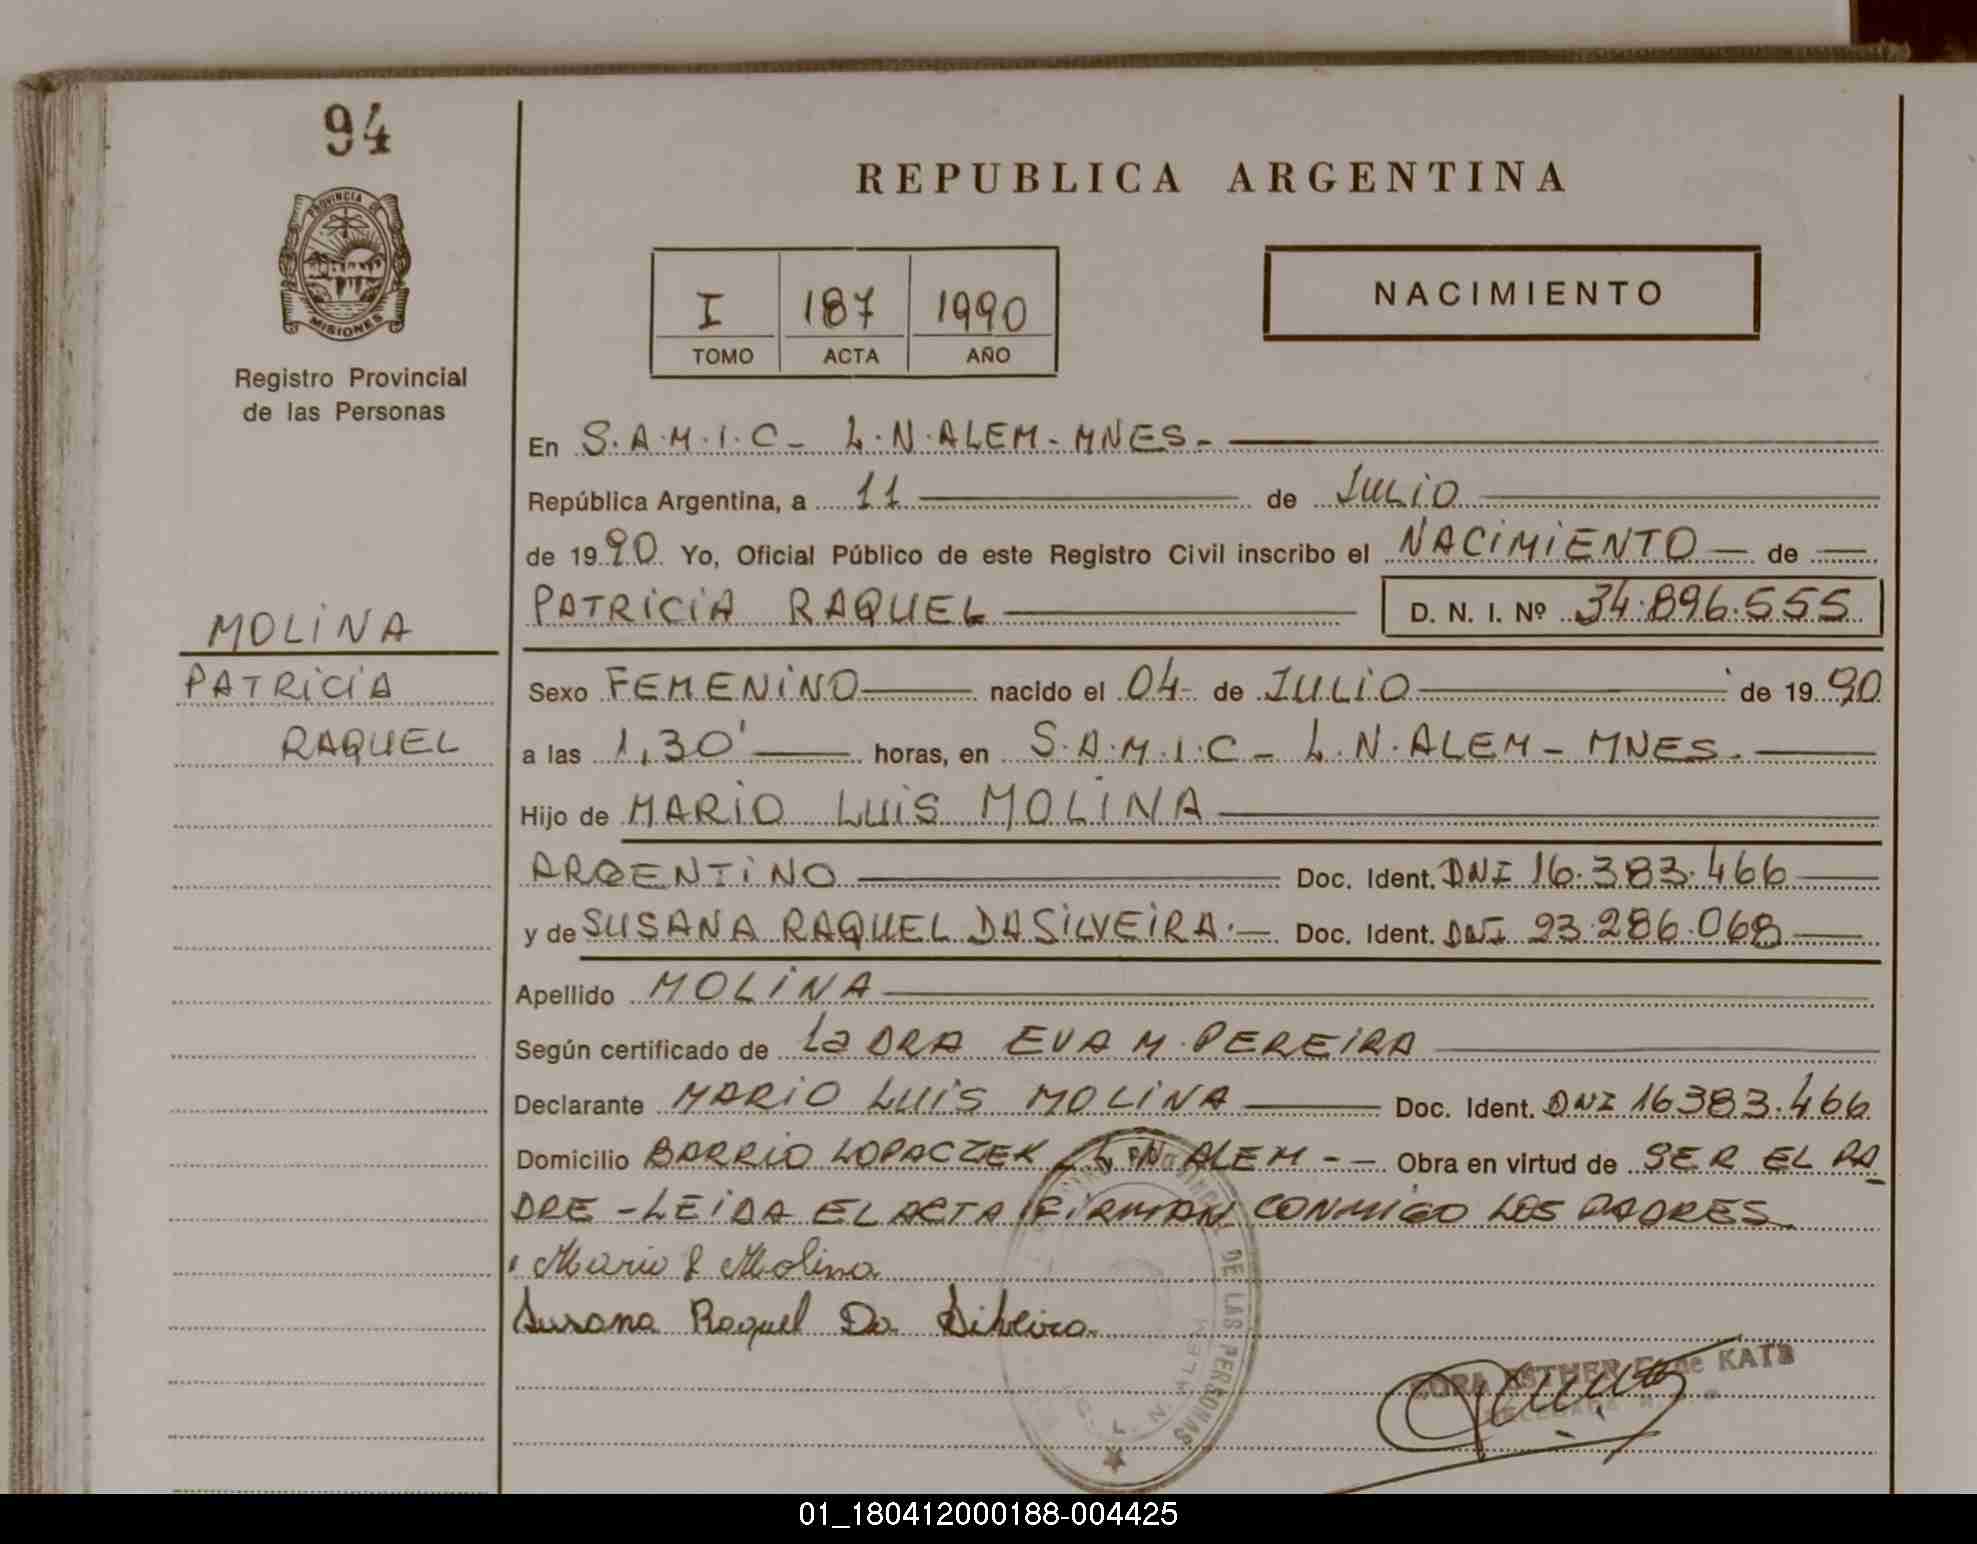 94
PROVINCIA DE
MISIONES
Registro Provincial
de las Personas
REPUBLICA ARGENTINA
I 187 1990
TOMO ACTA AÑO
NACIMIENTO
En S.A.M.I.C - L.N.ALEM - MNES.-
República Argentina, a 11 de JULIO
de 1990 Yo, Oficial Público de este Registro Civil inscribo el NACIMIENTO — de —
PATRICIA RAQUEL D. N. I. Nº 34.896.555
MOLINA
PATRICIA
RAQUEL
Sexo FEMENINO nacido el 04 de JULIO de 1990
a las 1,30' horas, en S.A.M.I.C - L.N.ALEM - MNES.
Hijo de MARIO LUIS MOLINA
ARGENTINO Doc. Ident. DNI 16.383.466
y de SUSANA RAQUEL DASILVEIRA.- Doc. Ident. DNI 93.286.068
Apellido MOLINA
Según certificado de La DRA EVA M. PEREIRA
Declarante MARIO LUIS MOLINA Doc. Ident. DNI 16383.466
Domicilio BARRIO LOPACZEK L N ALEM - - Obra en virtud de SER EL PA
DRE - LEIDA EL ACTA FIRMAN CONMIGO LOS PADRES
Mario L Molina
Susana Raquel Da Silveira
DE LAS PERSONAS
L. N. ALEM
ESTHER de KATZ
01_180412000188-004425